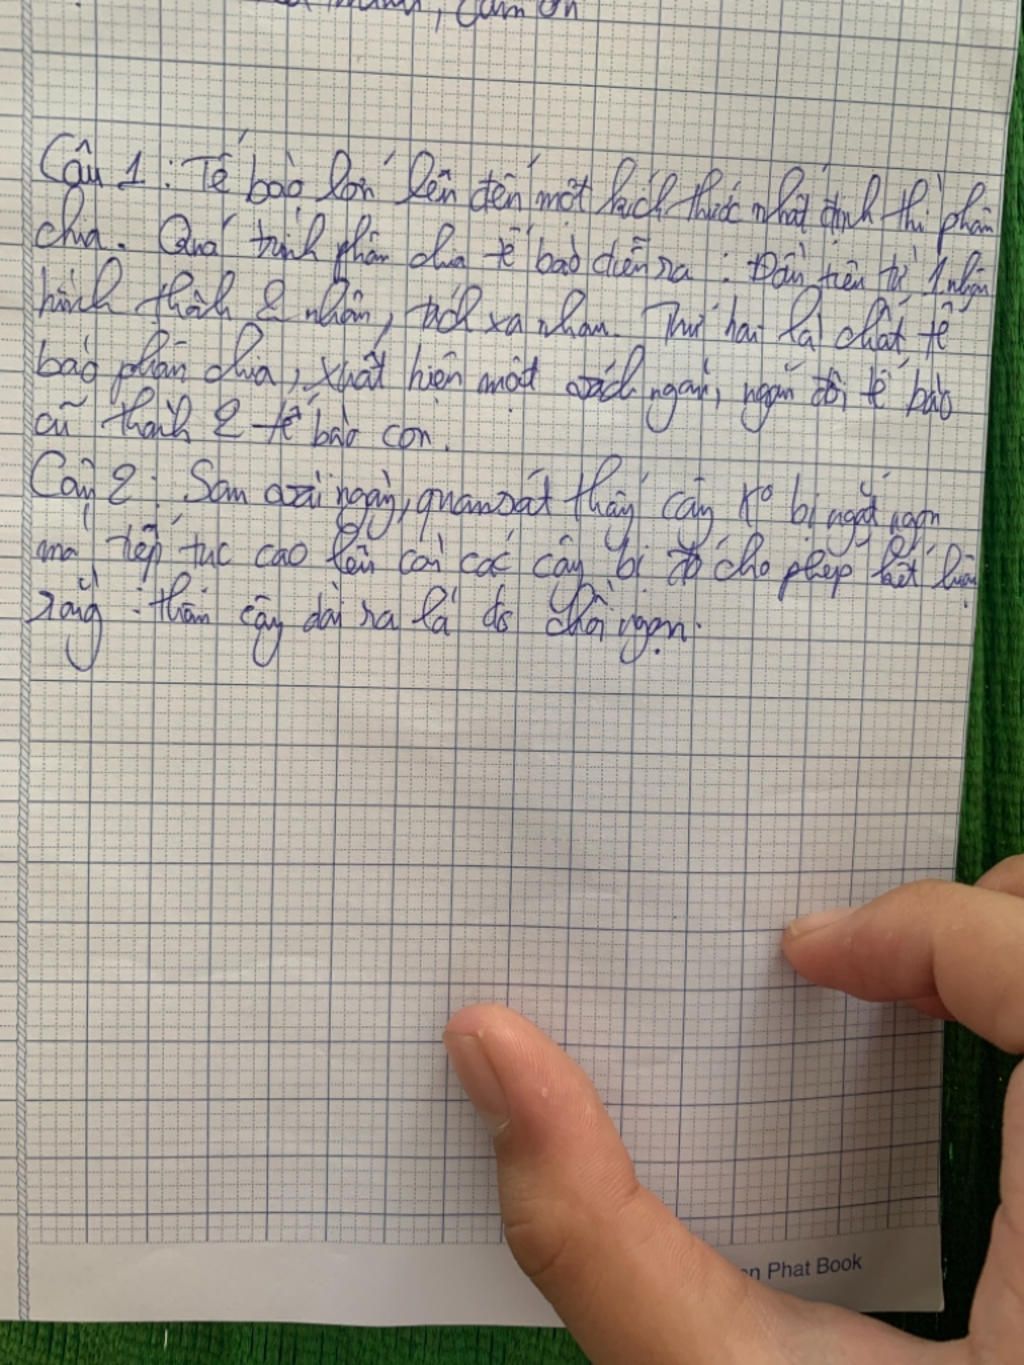 , cảm ơn
Câu 1 : Tế bào lớn lên đến một kích thước nhất định thì phân
chia. Quá trình phân chia tế bào diễn ra : Đầu tiên từ 1 nhân
hình thành 2 nhân, tách xa nhau. Thứ hai là chất tế
bào phân chia, xuất hiện một vách ngăn, ngăn đôi tế bào
cũ thành 2 tế bào con.
Câu 2 : Sau vài ngày, quan sát thấy cây ko bị ngắt ngọn
mà tiếp tục cao lên còn các cây bị đó cho phép kết luận
rằng : thân cây dài ra là do chồi ngọn.
Phat Book